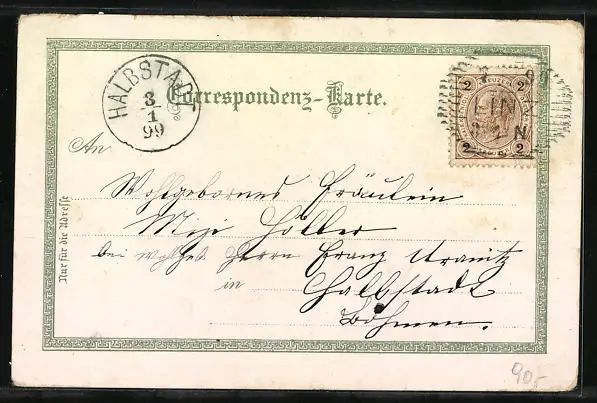 HALBSTADT
3
1
99
Correspondenz-Karte.
2 KREUZER 2
LIN
N
2 2
An
Wohlgebornes Fräulein
Mizi Holler
bei wohlgeb. Herrn Franz Uranitz
in Halbstadt
Böhmen.
Nur für die Adresse
90,-